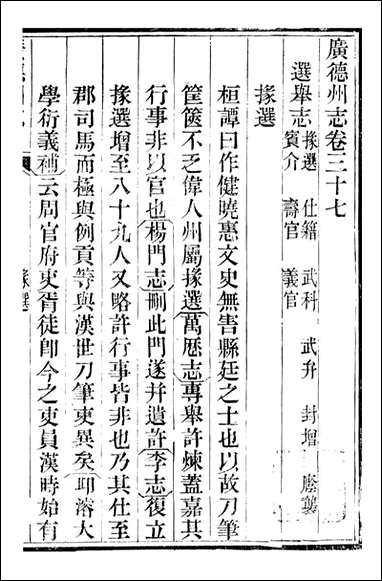 廣德州志卷三十七
選舉志 掾選 仕籍 武科 武弁 封增 廕襲
賓介 壽官 義官
掾選
桓譚曰作健曉惠文史無害縣廷之士也以故刀筆
筐篋不乏偉人州屬掾選萬歷志專舉許煉蓋嘉其
行事非以官也楊門志刪此門遂并遺許李志復立
掾選增至八十九人又略許行事皆非也乃其仕至
郡司馬而極與例貢等與漢世刀筆吏異矣邱濬大
學衍義補云周官府吏胥徒卽今之吏員漢時始有
掾選